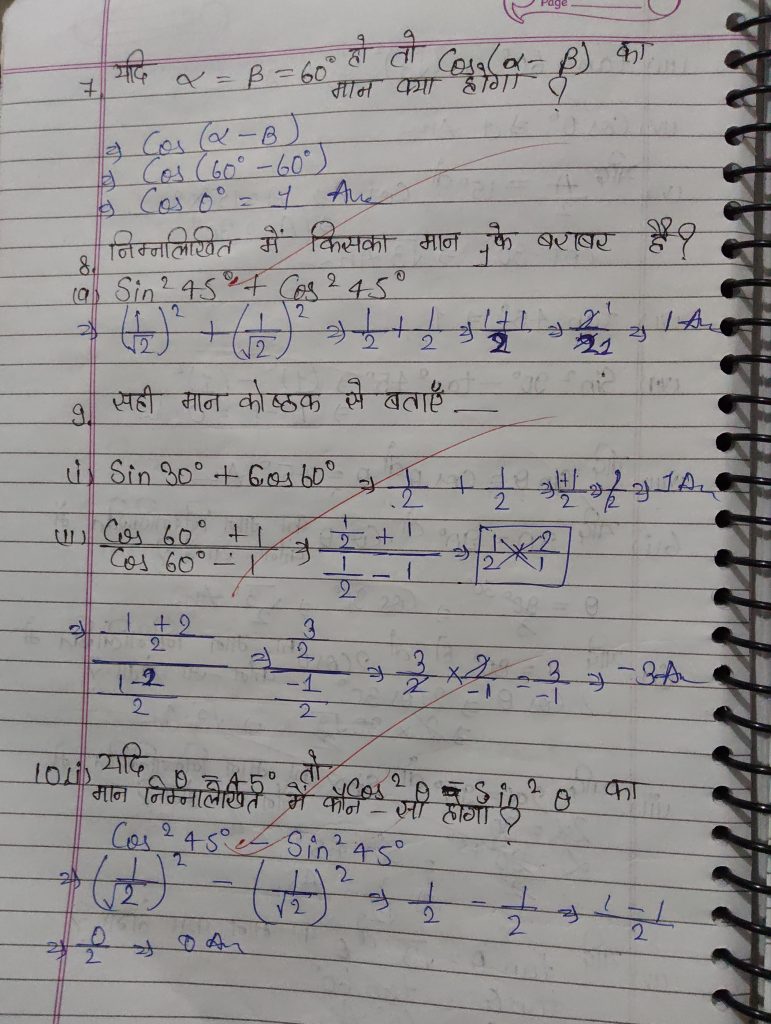 Page
7. यदि α = β = 60° हो तो Cos(α - β) का
मान क्या होगा ?
⇒ Cos (α - β)
⇒ Cos (60° - 60°)
⇒ Cos 0° = 1 Ans
8. निम्नलिखित में किसका मान 1 के बराबर है?
(a) Sin² 45° + Cos² 45°
⇒ (1/√2)² + (1/√2)² ⇒ 1/2 + 1/2 ⇒ 1+1/2 ⇒ 2/2 ⇒ 1 Ans
9. सही मान कोष्ठक से बताएँ —
(i) Sin 30° + Cos 60° ⇒ 1/2 + 1/2 ⇒ 1+1/2 ⇒ 2/2 ⇒ 1 Ans
(ii) Cos 60° + 1 / Cos 60° - 1 ⇒ 1/2 + 1 / 1/2 - 1 ⇒ 1/2 × 2/1
⇒ 1 + 2/2 / 1 - 2/2 ⇒ 3/2 / -1/2 ⇒ 3/2 × 2/-1 = 3/-1 ⇒ -3 Ans
10.(i) यदि θ = 45° तो Cos² θ - Sin² θ का
मान निम्नलिखित में कौन - सा होगा ?
Cos² 45° - Sin² 45°
⇒ (1/√2)² - (1/√2)² ⇒ 1/2 - 1/2 ⇒ 1 - 1/2
⇒ 0/2 ⇒ 0 Ans